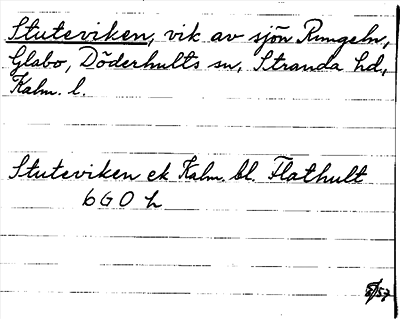 Stuteviken, vik av sjön Rungeln,
Glabo, Döderhults sn, Stranda hd,
Kalm. l.
Stuteviken ek Kalm. bl. Flathult
6 G O h
/57